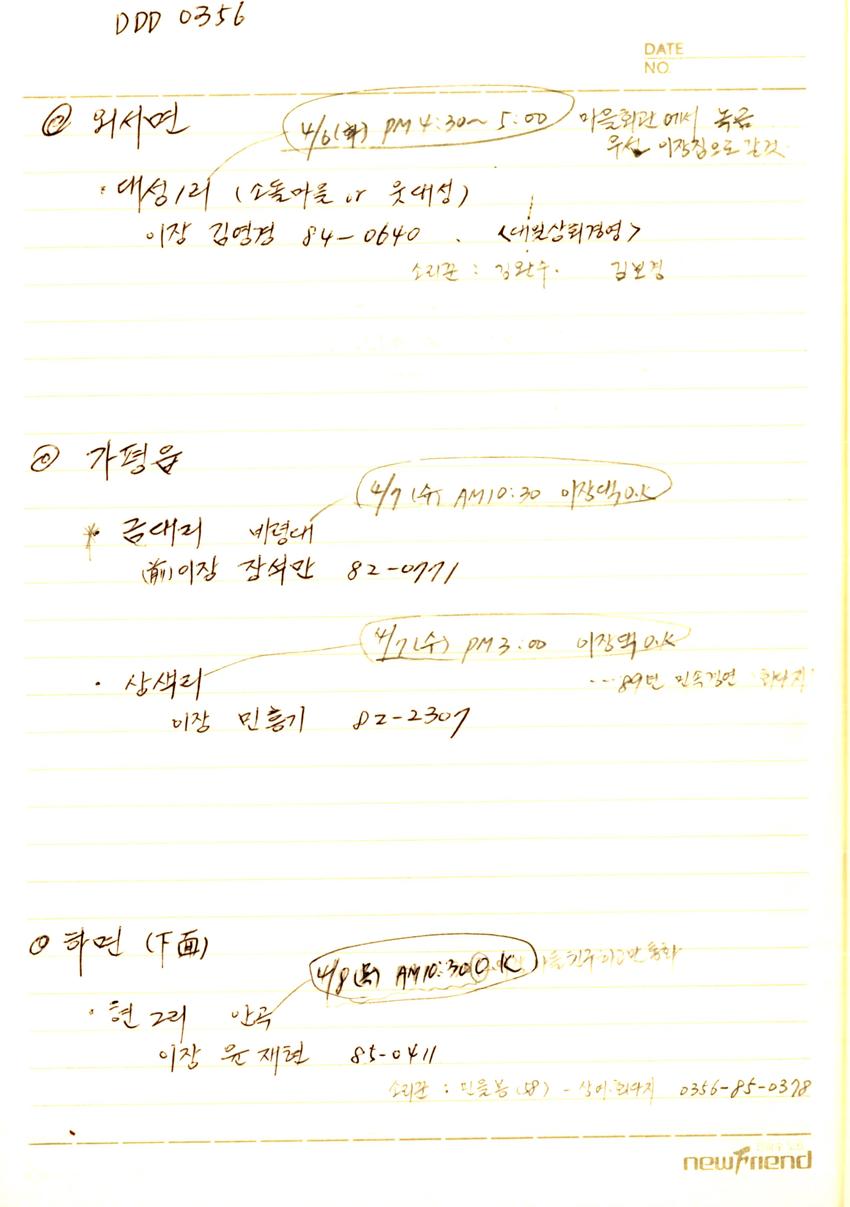 DDD 0356
DATE
NO.
◎ 외서면 4/6(火) PM 4:30~5:00 마을회관에서 녹음
우선 이장집으로 갈것.
· 대성1리 (소돌마을 or 웃대성)
이장 김영경 84-0640.
소리꾼 : 김완수. 김보경
◎ 가평읍
4/7 (수) AM 10:30 이장댁 O.K
* 금대리 비령대
(前)이장 장석만 82-0771
4/7(수) PM 3:00 이장댁 O.K
... 89년 민속경연
· 상색리
이장 민흥기 82-2307
◎ 하면 (下面)
4/8(목) AM 10:30 O.K
· 현2리 안곡
이장 윤재현 85-0411
소리꾼 : 민을봉 (58) - 상여·회다지 0356-85-0378
newFriend